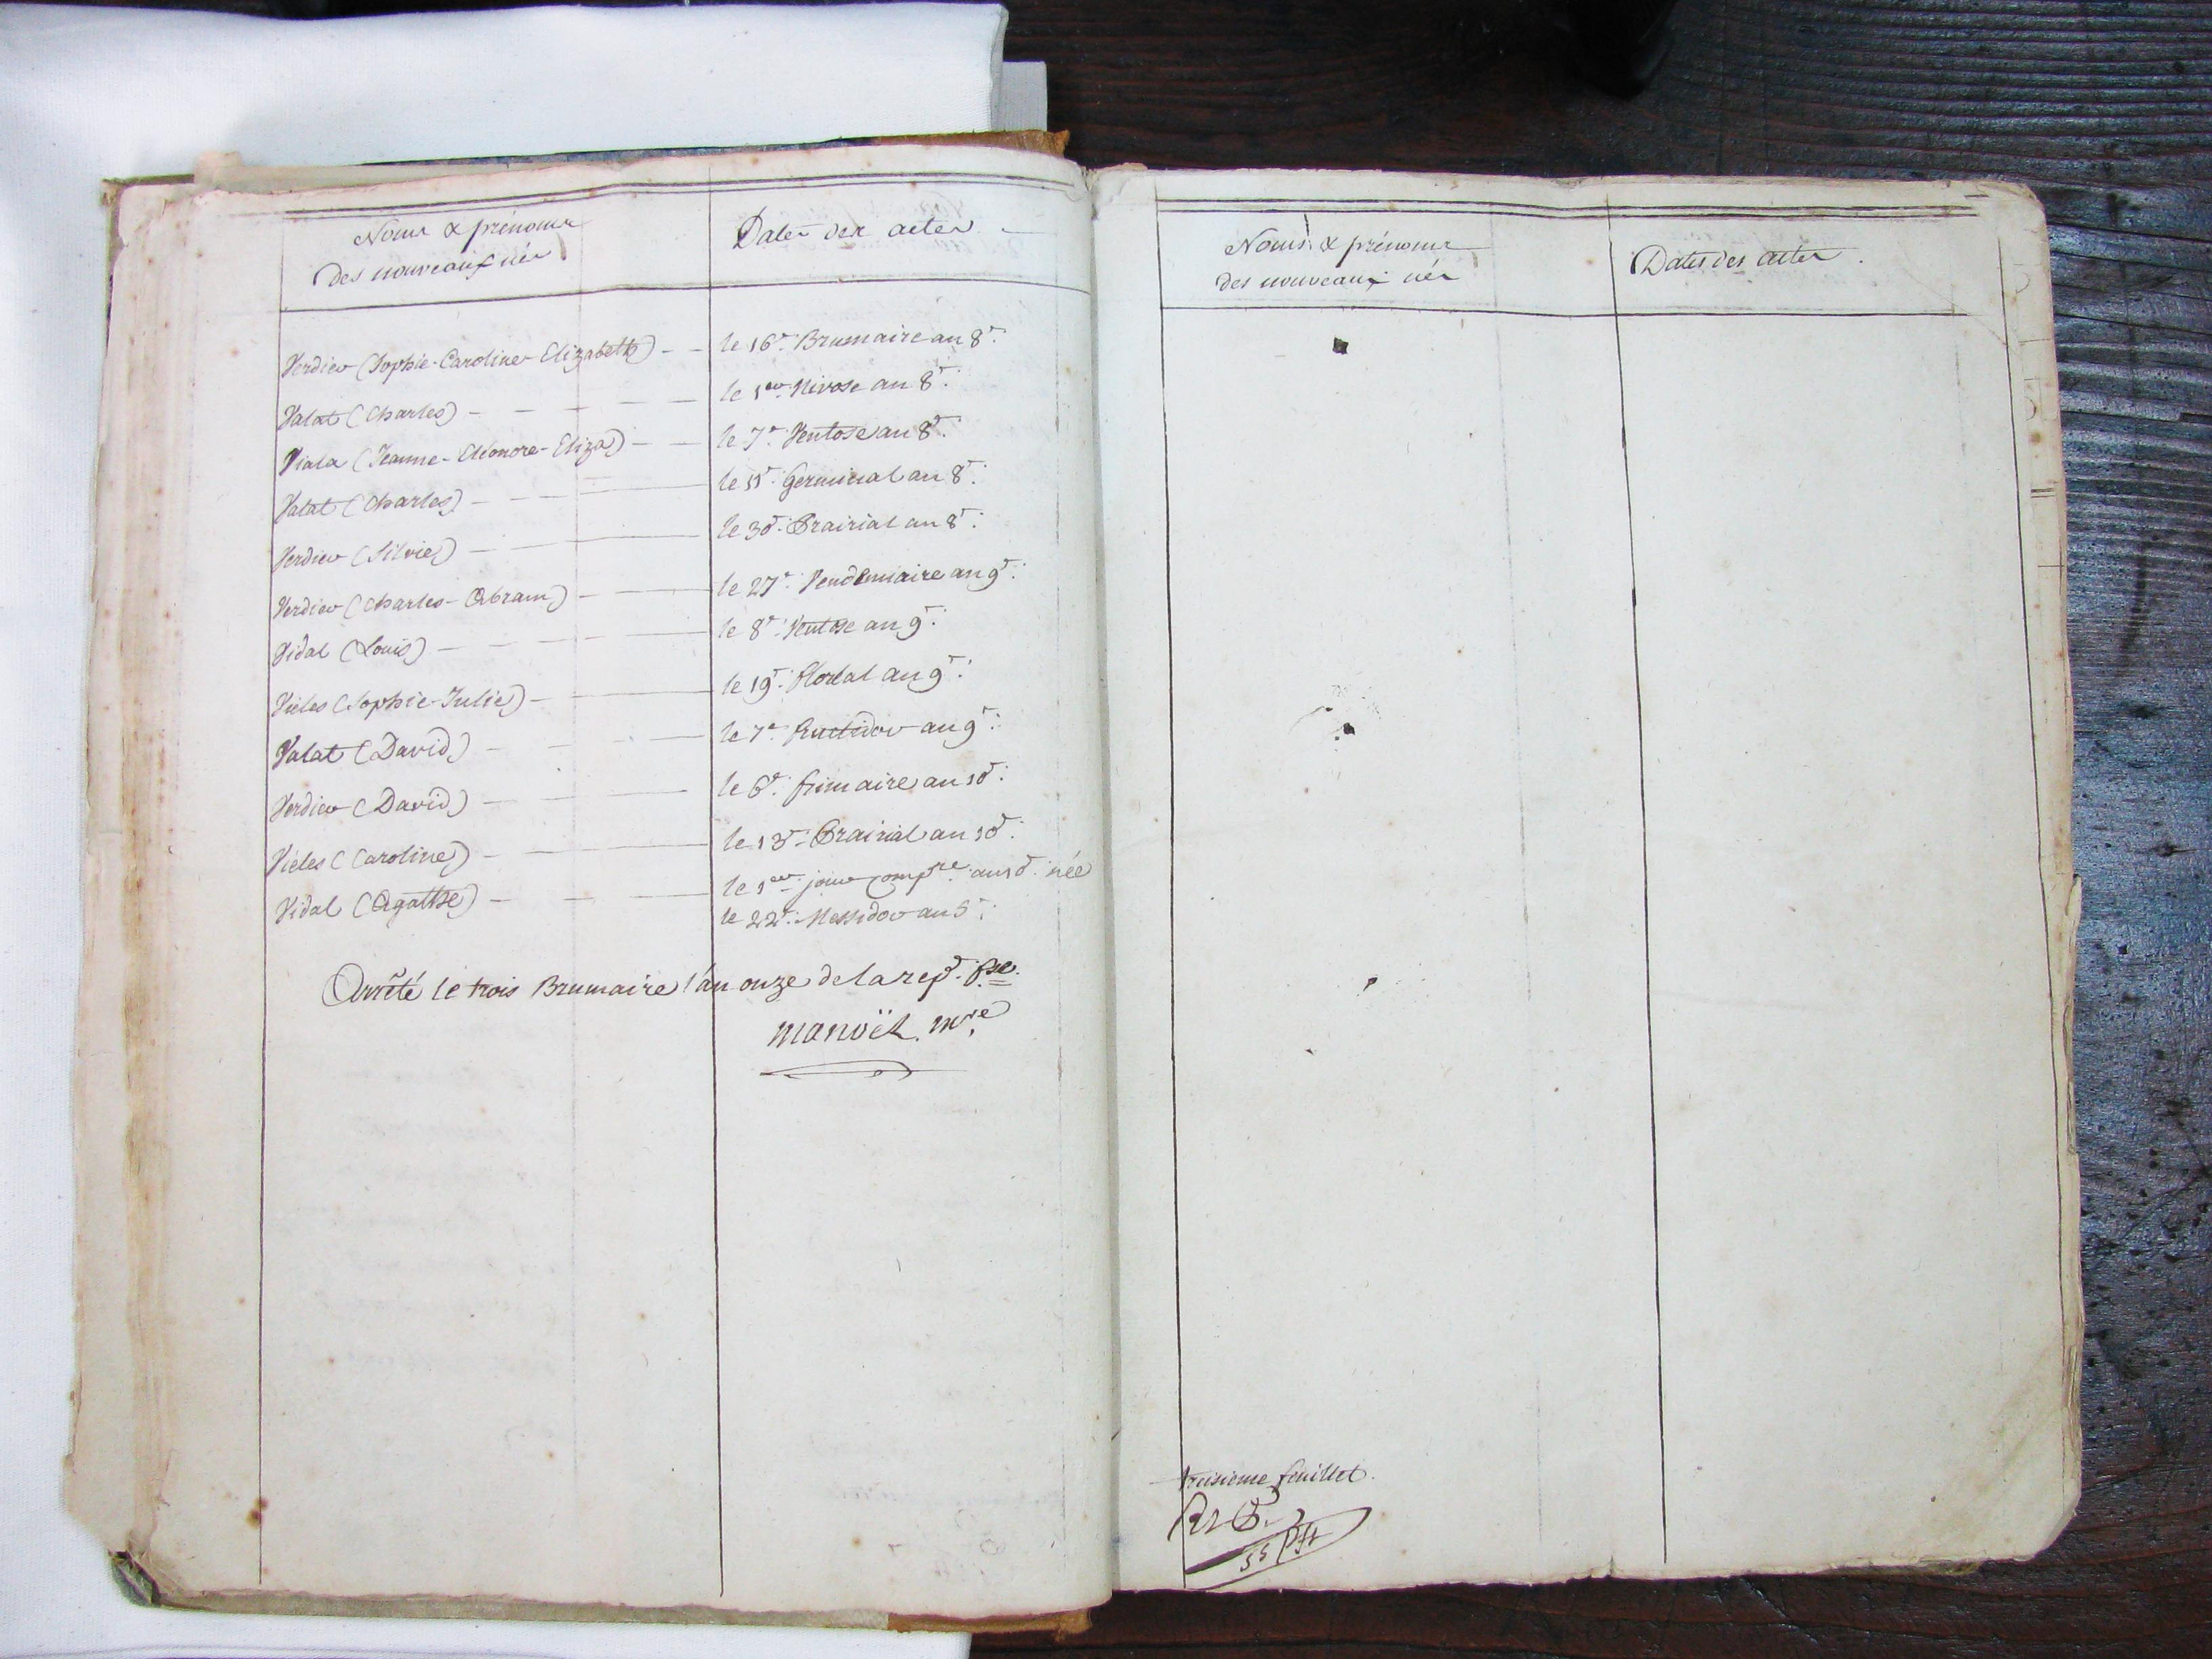 Noms & prénoms
des nouveaux nés
Dates des actes
Verdier (Sophie-Caroline-Elizabeth) - - le 16e. Brumaire an 8e.
Valat (Charles) - - - - - le 1er. Nivose an 8e.
Viala (Jeanne-Eléonore-Eliza) - - le 7e. Ventose an 8e.
Valat (Charles) - - - le 11e. Germinal an 8e.
Verdier (Silvie) - - - le 30e. Prairial an 8e.
Verdier (Charles-Abram) - - le 27e. Vendémiaire an 9e.
Vidal (Louis) - - - - le 8e. Ventose an 9e.
Vieles (Sophie-Julie) - - le 19e. floréal an 9e.
Valat (David) - - - - le 7e. fructidor an 9e.
Verdier (David) - - - le 6e. frimaire an 10e.
Vieles (Caroline) - - - le 13e. Prairial an 10e.
Vidal (Agathe) - - - le 1er. jour compre. an 10e. née
le 22e. Messidor an 5e.
Arrêté le trois Brumaire l'an onze de la rep. fse.
manoël. mre.
Noms & prénoms
des nouveaux nés
Dates des actes.
troisieme feuillet.